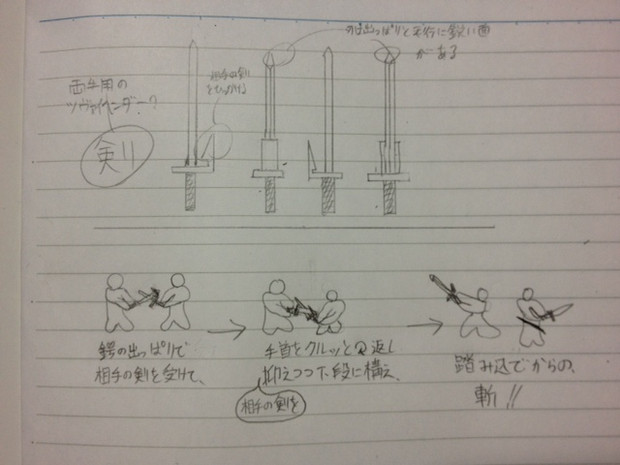 出っぱりと平行に鋭い面
がある
両手用の
ツヴァイハンダー?
剣
相手の剣
をひっかける
鍔の出っぱりで
相手の剣を受けて、
手首をクルッと返し
抑えつつ下段に構え、
相手の剣を
踏み込でからの、
斬!!